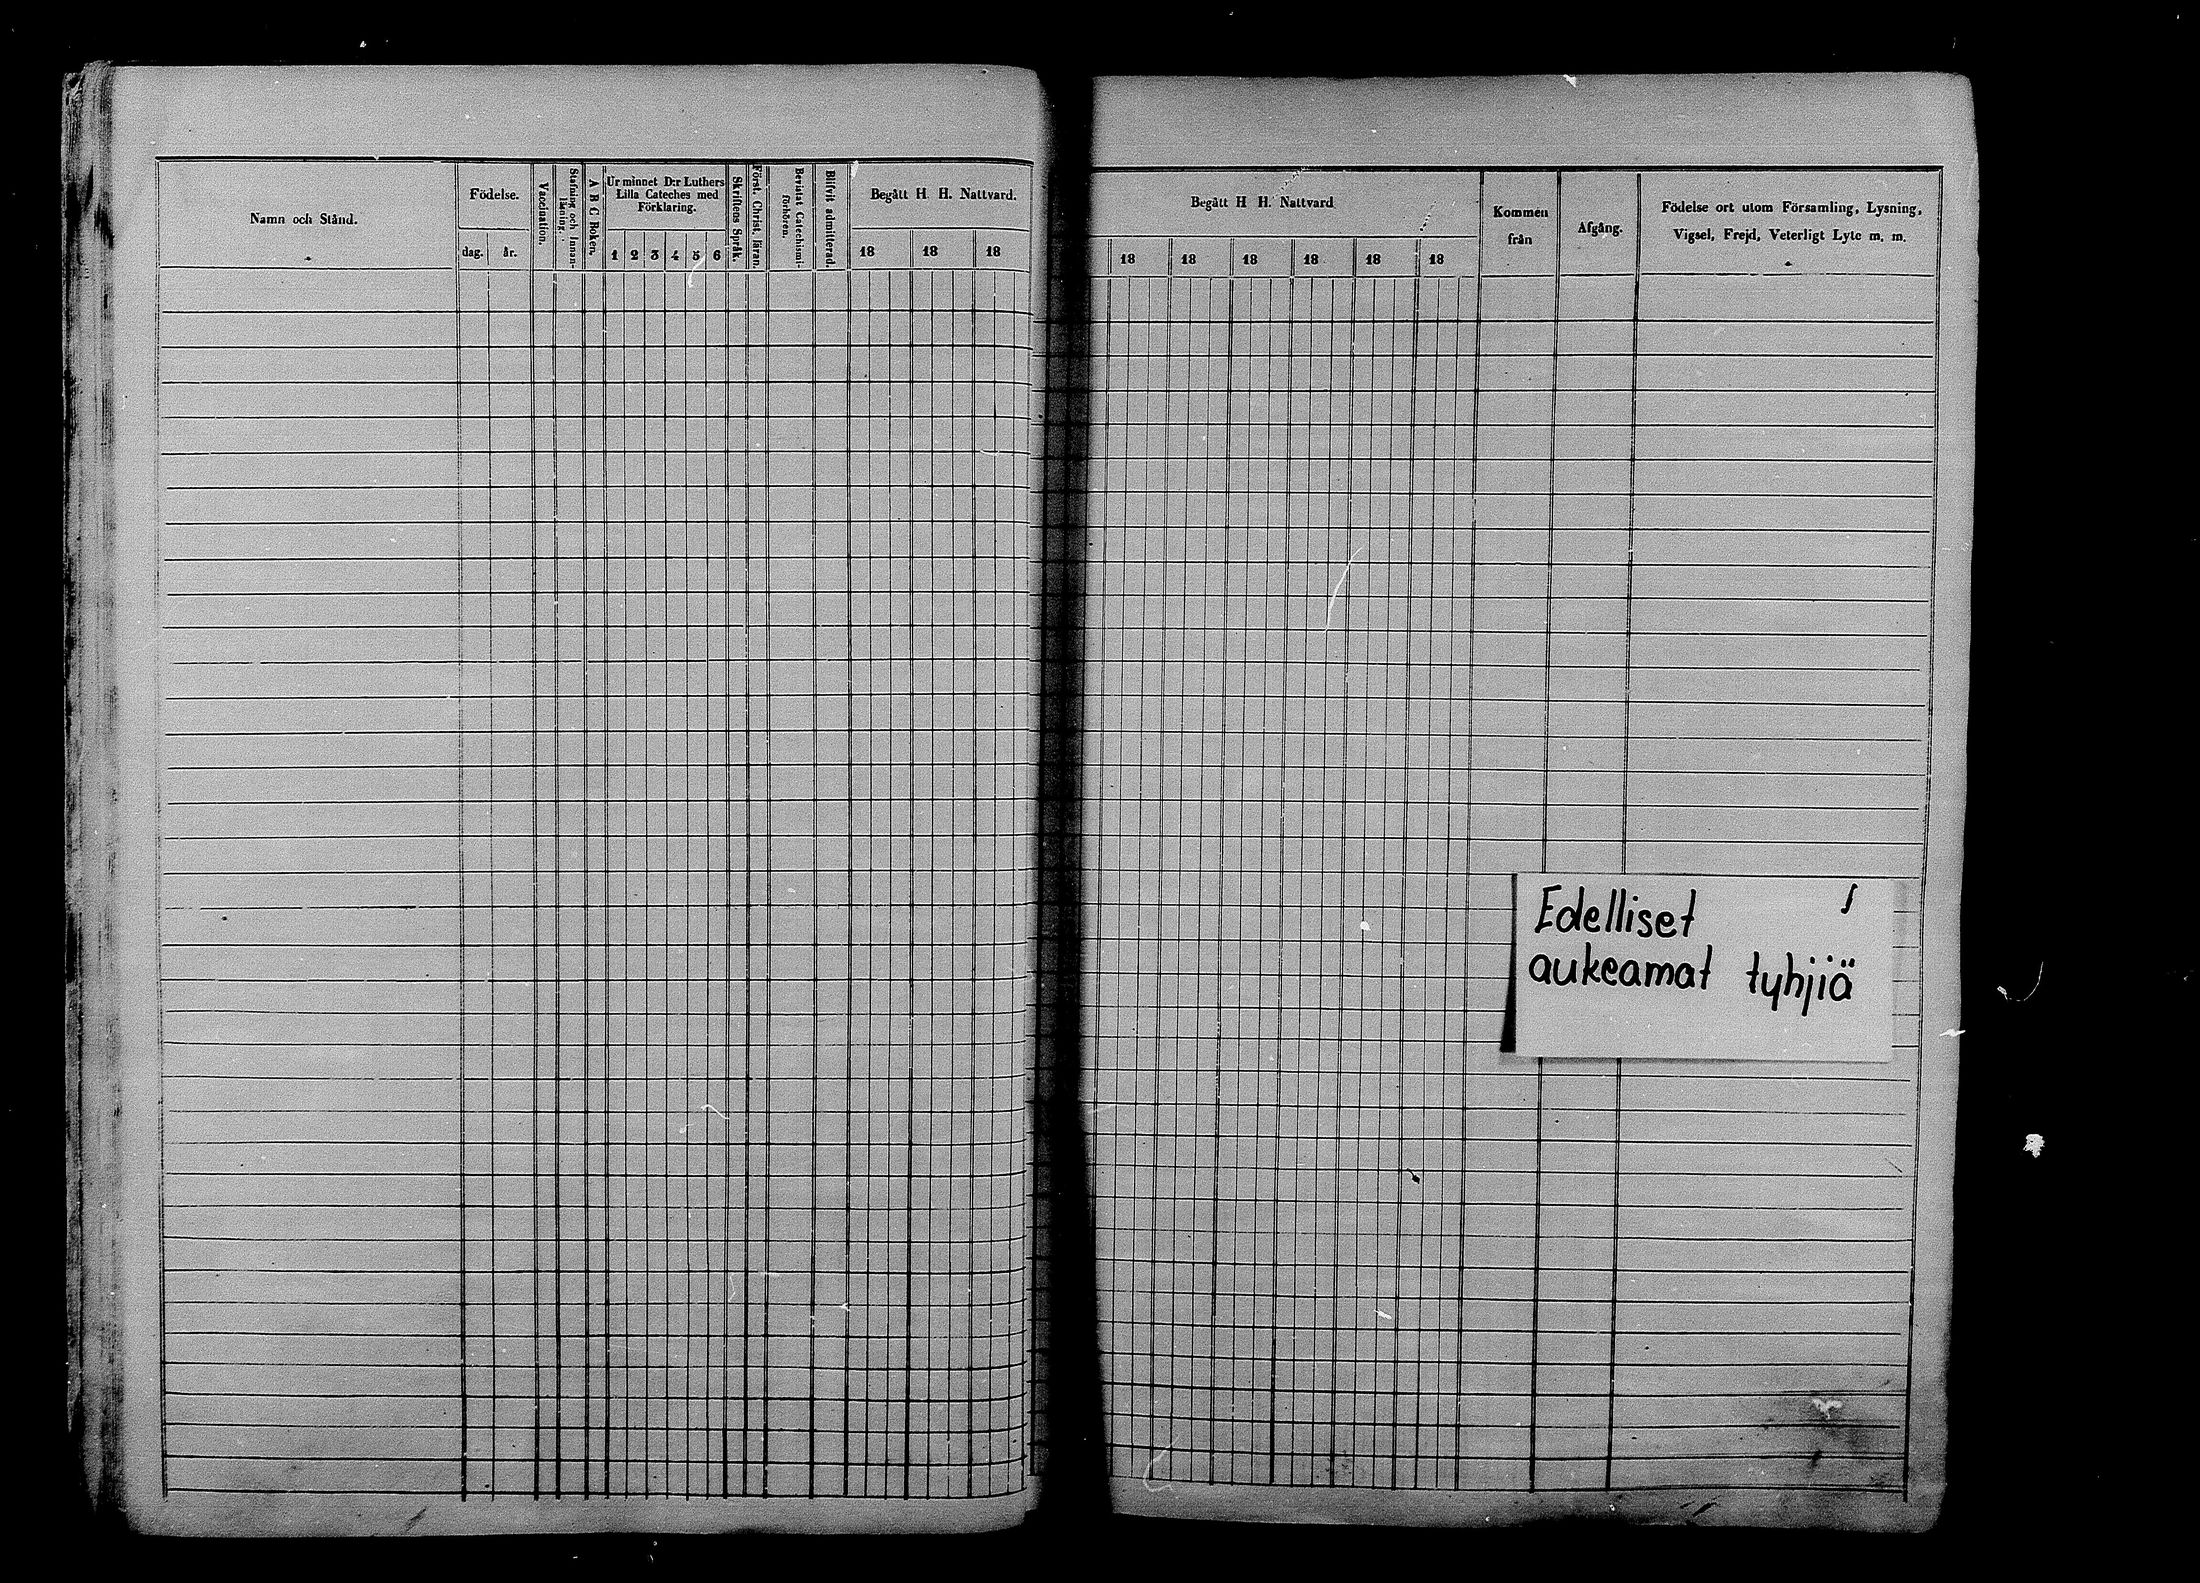 Namn och Stånd.
Födelse.
dag. år.
Vaccination.
Stafning och Innan-
läsning.
A B C Boken.
Ur minnet D:r Luthers
Lilla Cateches med
Förklaring.
1 2 3 4 5 6
Skriftens Språk.
Först. Christ. läran.
Bevistat Catechismi-
förhören.
Blifvit admitterad.
Begått H. H. Nattvard.
18 18 18
Begått H H. Nattvard
18 18 18 18 18 18
Kommen
från
Afgång.
Födelse ort utom Församling, Lysning,
Vigsel, Frejd, Veterligt Lyte m. m.
Edelliset
aukeamat tyhjiä